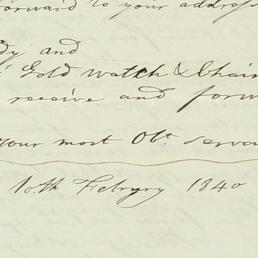 forward to your address
dy and
Gold watch & Chain
receive and forw
your most Obt. Servan
10th Febryry 1840